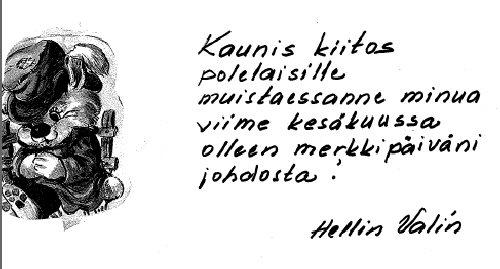 Kaunis kiitos
polelaisille
muistaessanne minua
viime kesäkuussa
olleen merkkipäiväni
johdosta.
Hellin Valin